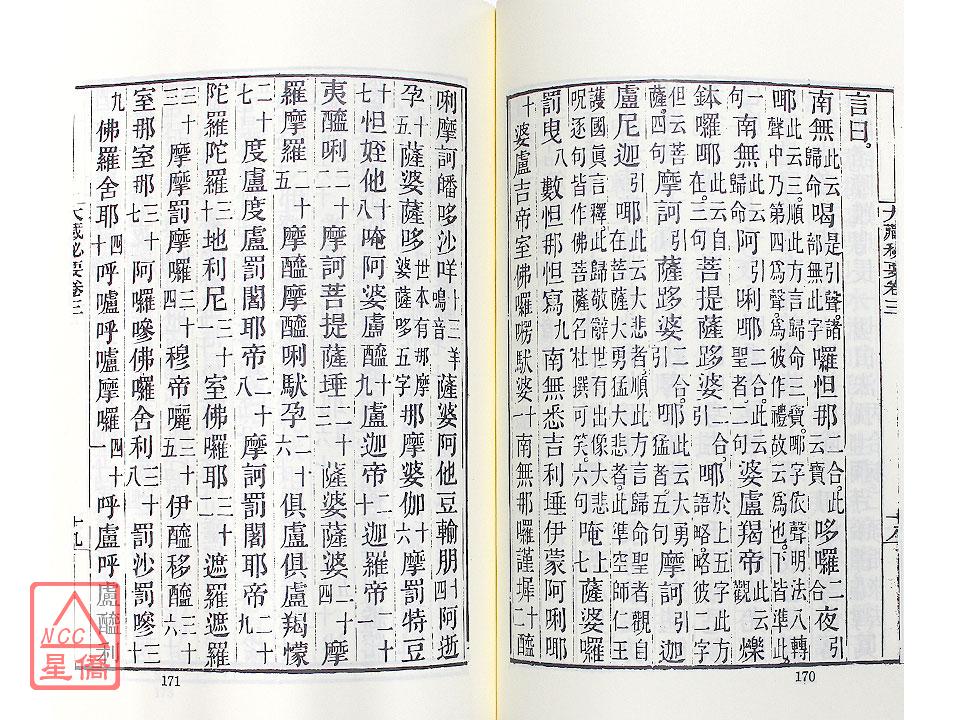 大藏秘要卷三
言曰。
南無此云歸命喝是引聲。諸部無此字囉怛那二合。此云寶哆囉二合夜引
㖿此云三。順此方言歸命三寶。㖿字依聲明法八轉聲中乃第四轉聲。為彼作禮故云為也。下皆準此
一句南無此云歸命阿唎㖿二合。此云聖者。二句婆盧羯帝此云爍
鉢囉㖿此云自在。三句菩提薩跢婆二合引㖿於上五字此方語略。略彼二字
但云菩薩。四句摩訶引薩跢婆二合引㖿此云大勇猛者。五句摩訶引迦
盧尼迦引㖿此云大悲者。順此方言歸命聖者觀自在菩薩大勇猛大悲者。此準空師仁王
護國眞言釋。此歸敬辭世有出像大悲呪逐句皆作佛菩薩名杜撰可笑。六句唵上七薩婆囉
罰曳八數怛那怛寫九南無悉吉利埵伊蒙阿唎㖿
十婆盧吉帝室佛囉㘄馱婆十一南無那囉謹墀十二醯
170
唎摩訶皤哆沙咩十三羊鳴音薩婆阿他豆輸朋十四阿逝
孕十五薩婆薩哆世本有那摩婆薩哆五字那摩婆伽十六摩罰特豆
十七怛姪他十八唵阿婆盧醯十九盧迦帝二十迦羅帝二十一
夷醯唎二十二摩訶菩提薩埵二十三薩婆薩婆二十四摩
羅摩羅二十五摩醯摩醯唎馱孕二十六俱盧俱盧羯懞
二十七度盧度盧罰闍耶帝二十八摩訶罰闍耶帝二十九
陀羅陀羅三十地利尼三十一室佛囉耶三十二遮羅遮羅
三十三摩摩罰摩囉三十四穆帝囇三十五伊醯移醯三十六
室那室那三十七阿囉嘇佛囉舍利三十八罰沙罰嘇三十
九佛羅舍耶四十呼嚧呼嚧摩囉四十一呼盧呼盧醯利
大藏秘要卷三
十九
171
NCC
星僑